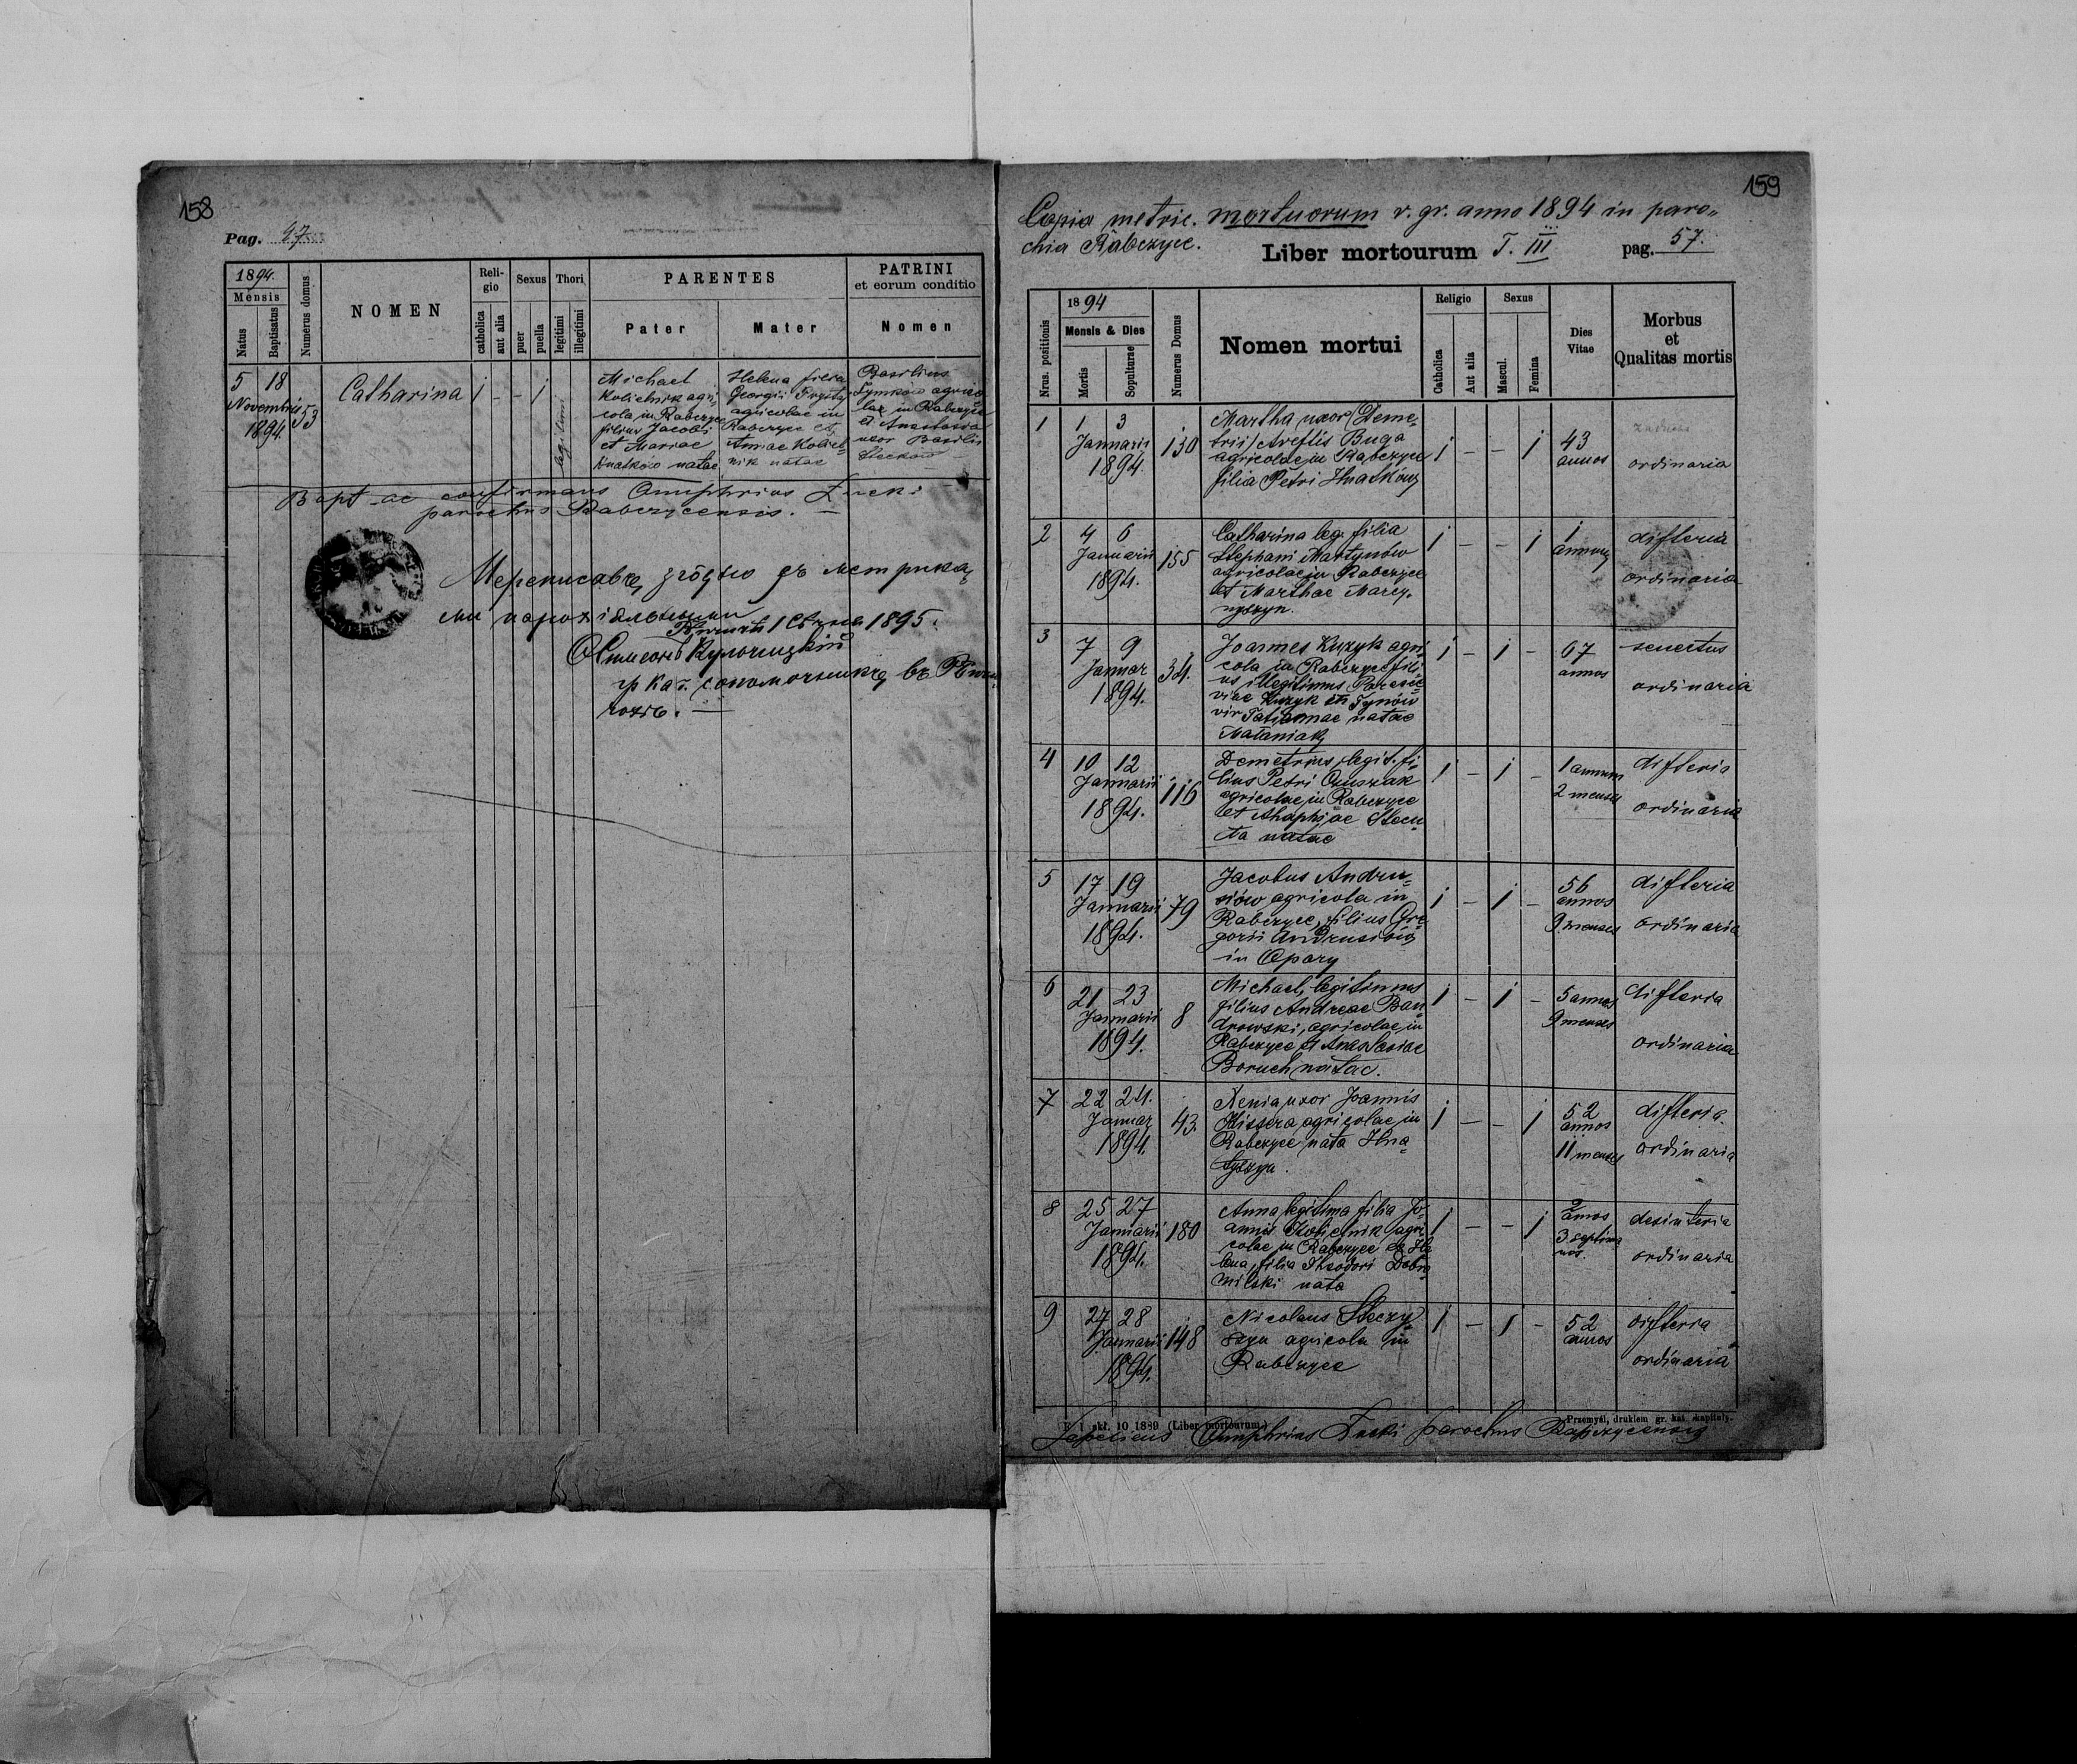 158
Pag. 47
1894.
Mensis
Natus
Baptisatus
Numerus domus
NOMEN
Religio
catholica
aut alia
Sexus
puer
puella
Thori
legitimi
illegitimi
PARENTES
Pater
Mater
PATRINI
et eorum conditio
Nomen
5 18
Novembris
1894.
53
Catharina
1 - - 1
legitimi
Michael
Kolicznik agri-
cola in Rabczyce
filius Jacobi
et Mariae
Hnatków natae
Helena filia
Georgii
agricolae in
Rabczyce et
Annae Kolicz-
nik natae
Basilius
Tymków agrico-
la in Rabczyce
et Anastasia
uxor Basilii
Steckow
Bapt. ac confirmans Onuphrius Łucki
parochus Rabczycensis.
зъ метрика-
ми парохіяльными
1895.
гр. кат. въ
159
Copia metric. mortuorum r. gr. anno 1894 in paro-
chia Rabczyce.
Liber mortourum T. III pag. 57.
Nrus. positionis
1894
Mensis & Dies
Mortis
Sepulturae
Numerus Domus
Nomen mortui
Religio
Catholica
Aut alia
Sexus
Mascul.
Femina
Dies
Vitae
Morbus
et
Qualitas mortis
1
1 3
Januarii
1894
130
Martha uxor Deme-
trii Buga
agricolae in Rabczyce
filia Petri Hnatków
1 - - 1
43
annos
ordinaria
2
4 6
Januarii
1894.
155
Catharina leg. filia
Stephani Martynów
agricolae in Rabczyce
et Marthae
1 - - 1
1
annum
difteria
ordinaria
3
7 9
Januar
1894.
34.
Joannes Kuzyk agri-
cola in Rabczyce fili-
us illegitimus Parasce-
viae Kuzyk in Tynów
vir Tatiannae natae
Mataniak
1 - 1 -
67
annos
senectus
ordinaria
4
10 12
Januarii
1894.
116
Demetrius, legit. fi-
lius Petri
agricolae in Rabczyce
et Ahaphiae
natae
1 - 1 -
1 annum
2 menses
difteria
ordinaria
5
17 19
Januarii
1894.
79
Jacobus Andru-
siów agricola in
Rabczyce, filius Gre-
gorii Andrusiów
in Opary
1 - 1 -
56
annos
9 menses
difteria
ordinaria
6
21 23
Januarii
1894.
8
Michael, legitimus
filius Andreae Ban-
drowski, agricolae in
Rabczyce et Anastasiae
Boruch natae.
1 - 1 -
5 annos
9 menses
difteria
ordinaria
7
22 24.
Januar
1894.
43
Xenia uxor Joannis
Kissera agricolae in
Rabczyce nata Hna-
tyszyn.
1 - - 1
52
annos
11 menses
difteria.
ordinaria
8
25 27
Januarii
1894.
180
Anna legitima filia Jo-
annis Kolicznik agri-
colae in Rabczyce et He-
lena, filia Theodori Dobro-
milski nata
1 - - 1
2
annos
3 septima-
nas.
desinteria
ordinaria
9
27 28
Januarii
1894.
148
Nicolaus Steczy-
szyn agricola in
Rabczyce
1 - 1 -
52
annos
difteria
ordinaria
F. 1 skł. 10 1889 (Liber mortourum.)
Przemyśl, drukiem gr. kat. kapituły.
Sepeliens Onuphrius Łucki parochus Rabczycensis